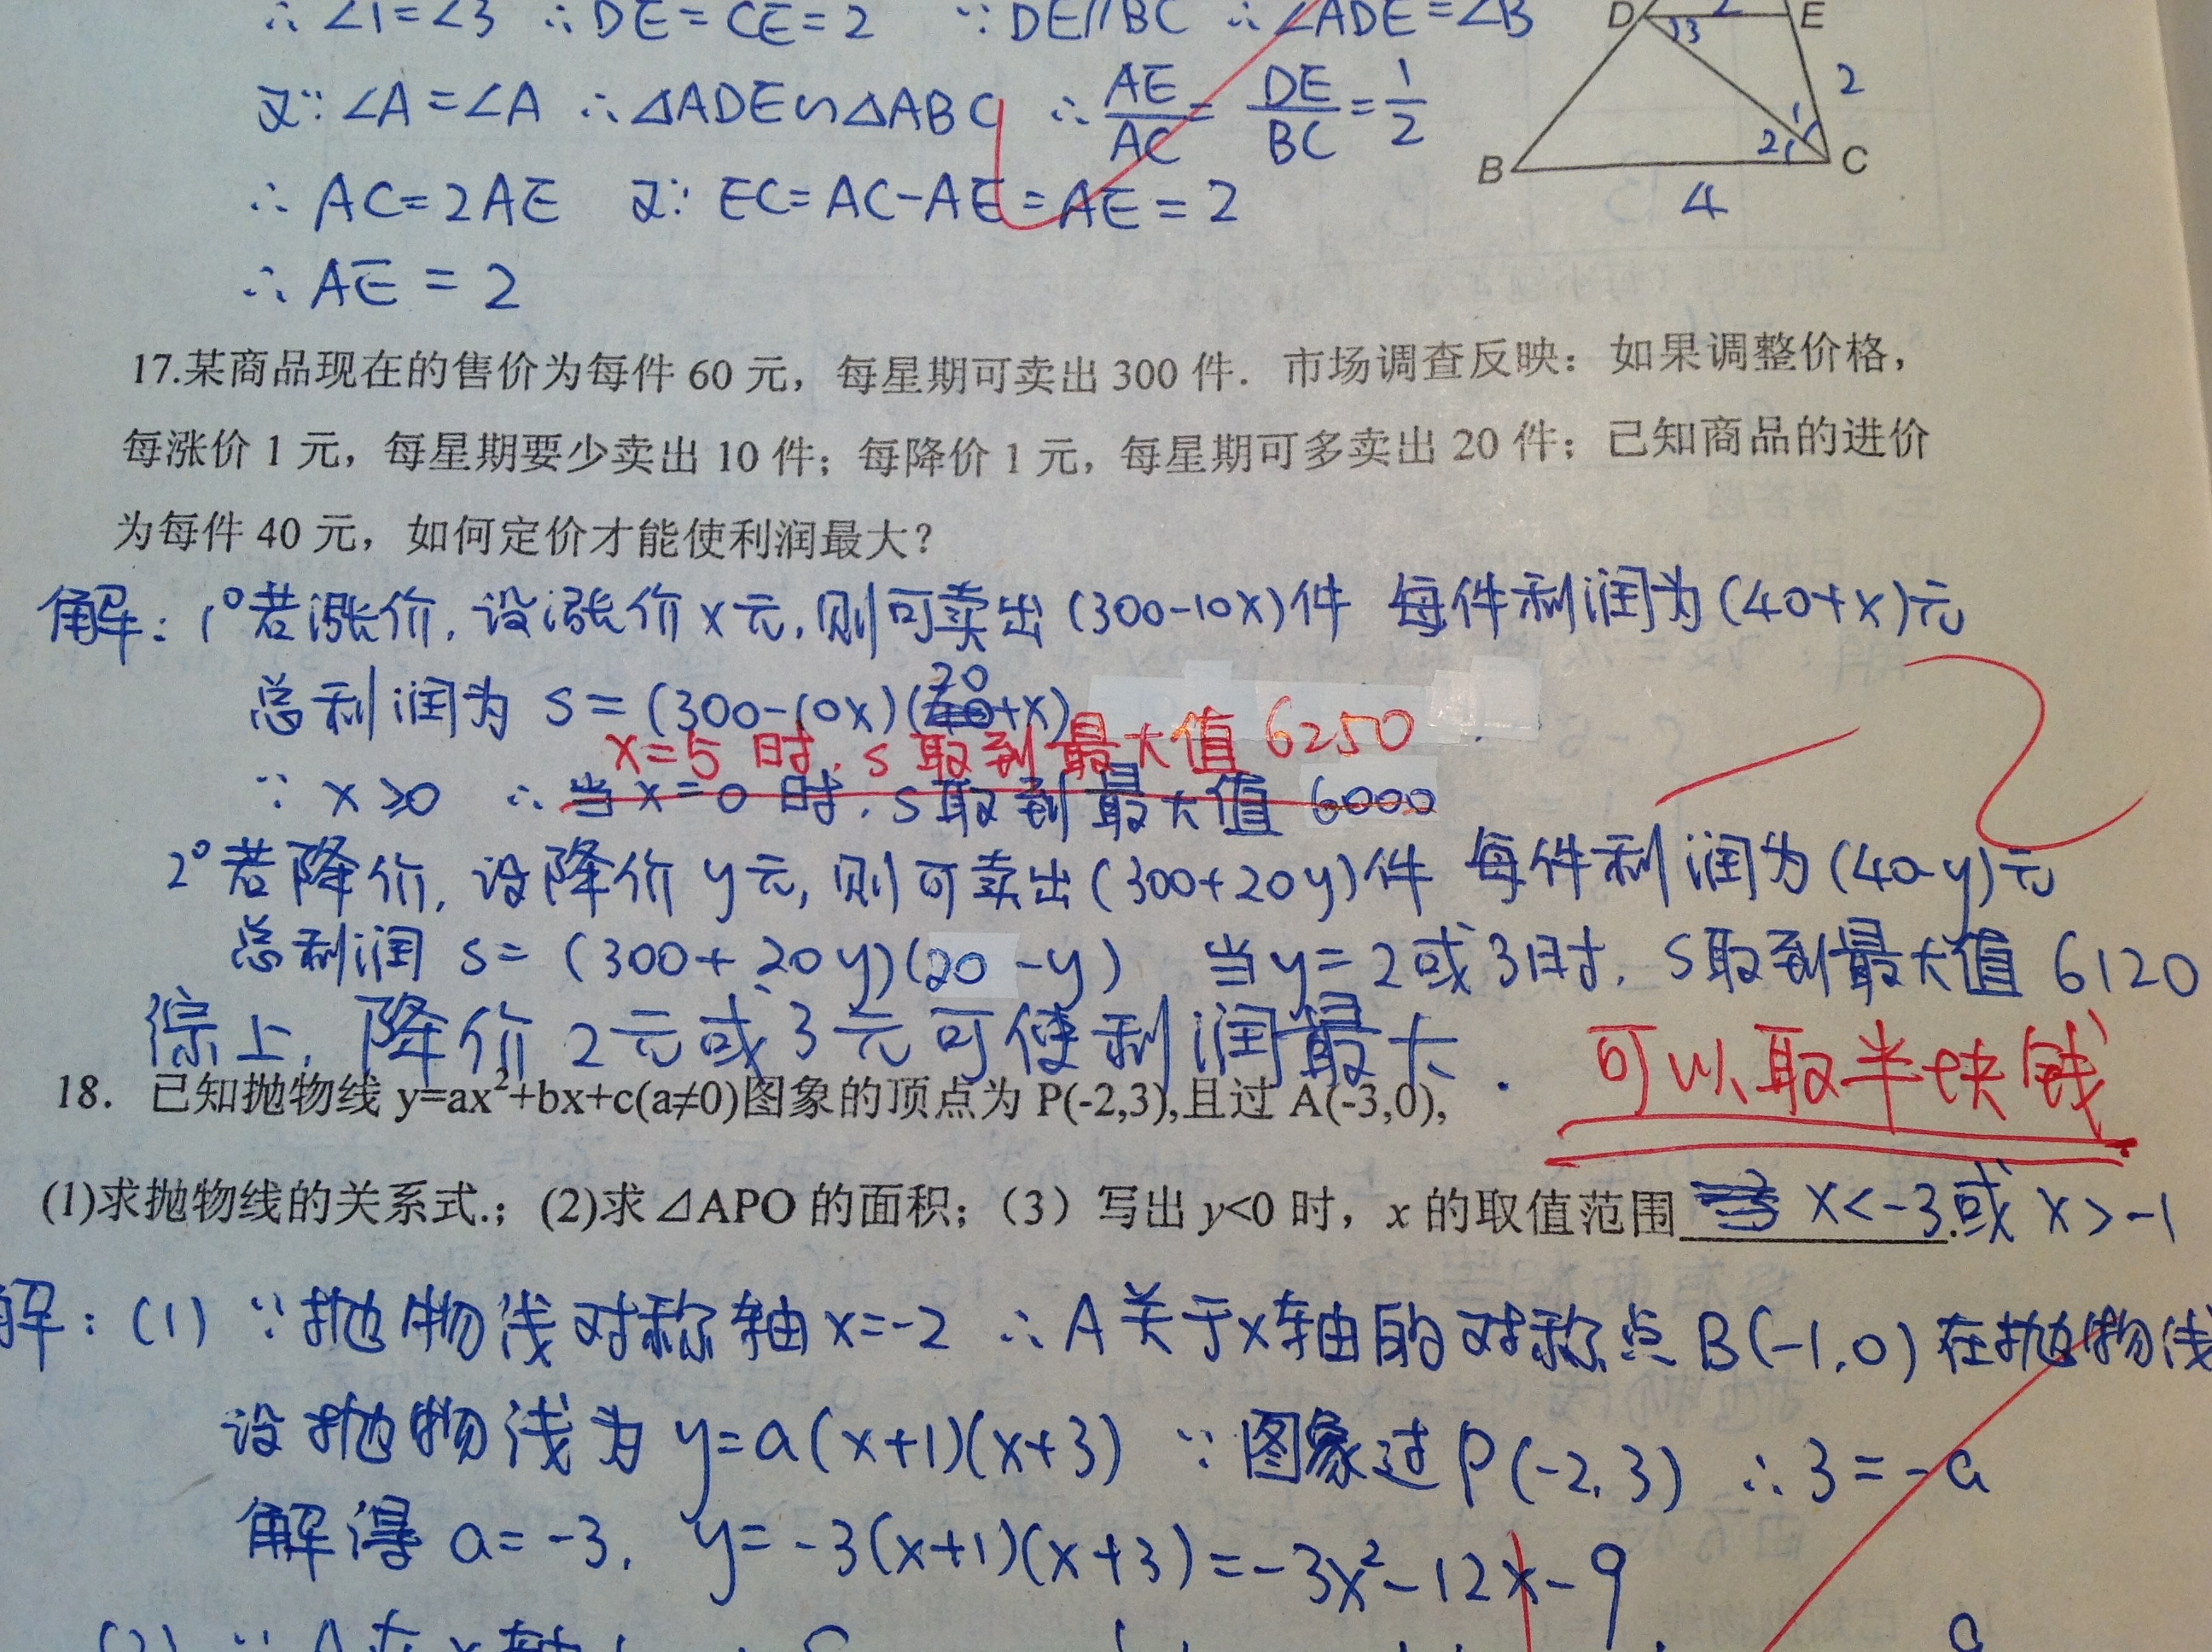 ∴ ∠1=∠3 ∴ DE=CE=2 ∵ DE∥BC ∴ ∠ADE=∠B
又∵ ∠A=∠A ∴ △ADE∽△ABC ∴ AE/AC = DE/BC = 1/2
∴ AC=2AE 又∵ EC=AC-AE=AE=2
∴ AE = 2
D 2 E
3
2
1
2
B C
4
17.某商品现在的售价为每件 60 元，每星期可卖出 300 件．市场调查反映：如果调整价格，
每涨价 1 元，每星期要少卖出 10 件；每降价 1 元，每星期可多卖出 20 件；已知商品的进价
为每件 40 元，如何定价才能使利润最大？
解：1° 若涨价，设涨价 x 元，则可卖出 (300-10x)件 每件利润为(40+x)元
总利润为 S = (300-10x)(20+x)
x=5 时，S 取到最大值 6250
∵ x≥0 ∴ 当 x=0 时，S取到最大值 6000
2° 若降价，设降价 y元，则可卖出(300+20y)件 每件利润为(40-y)元
总利润 S= (300+20y)(20-y) 当y=2或3时，S取到最大值 6120
综上，降价 2元或3元可使利润最大．
可以取半块钱
18．已知抛物线 y=ax²+bx+c(a≠0)图象的顶点为 P(-2,3),且过 A(-3,0),
(1)求抛物线的关系式.；(2)求⊿APO 的面积；（3）写出 y<0 时，x 的取值范围 x<-3.或 x>-1
解：(1) ∵抛物线对称轴x=-2 ∴A关于x轴的对称点B(-1,0)在抛物线
设抛物线为 y=a(x+1)(x+3) ∵图象过P(-2,3) ∴3=-a
解得 a=-3， y=-3(x+1)(x+3)=-3x²-12x-9